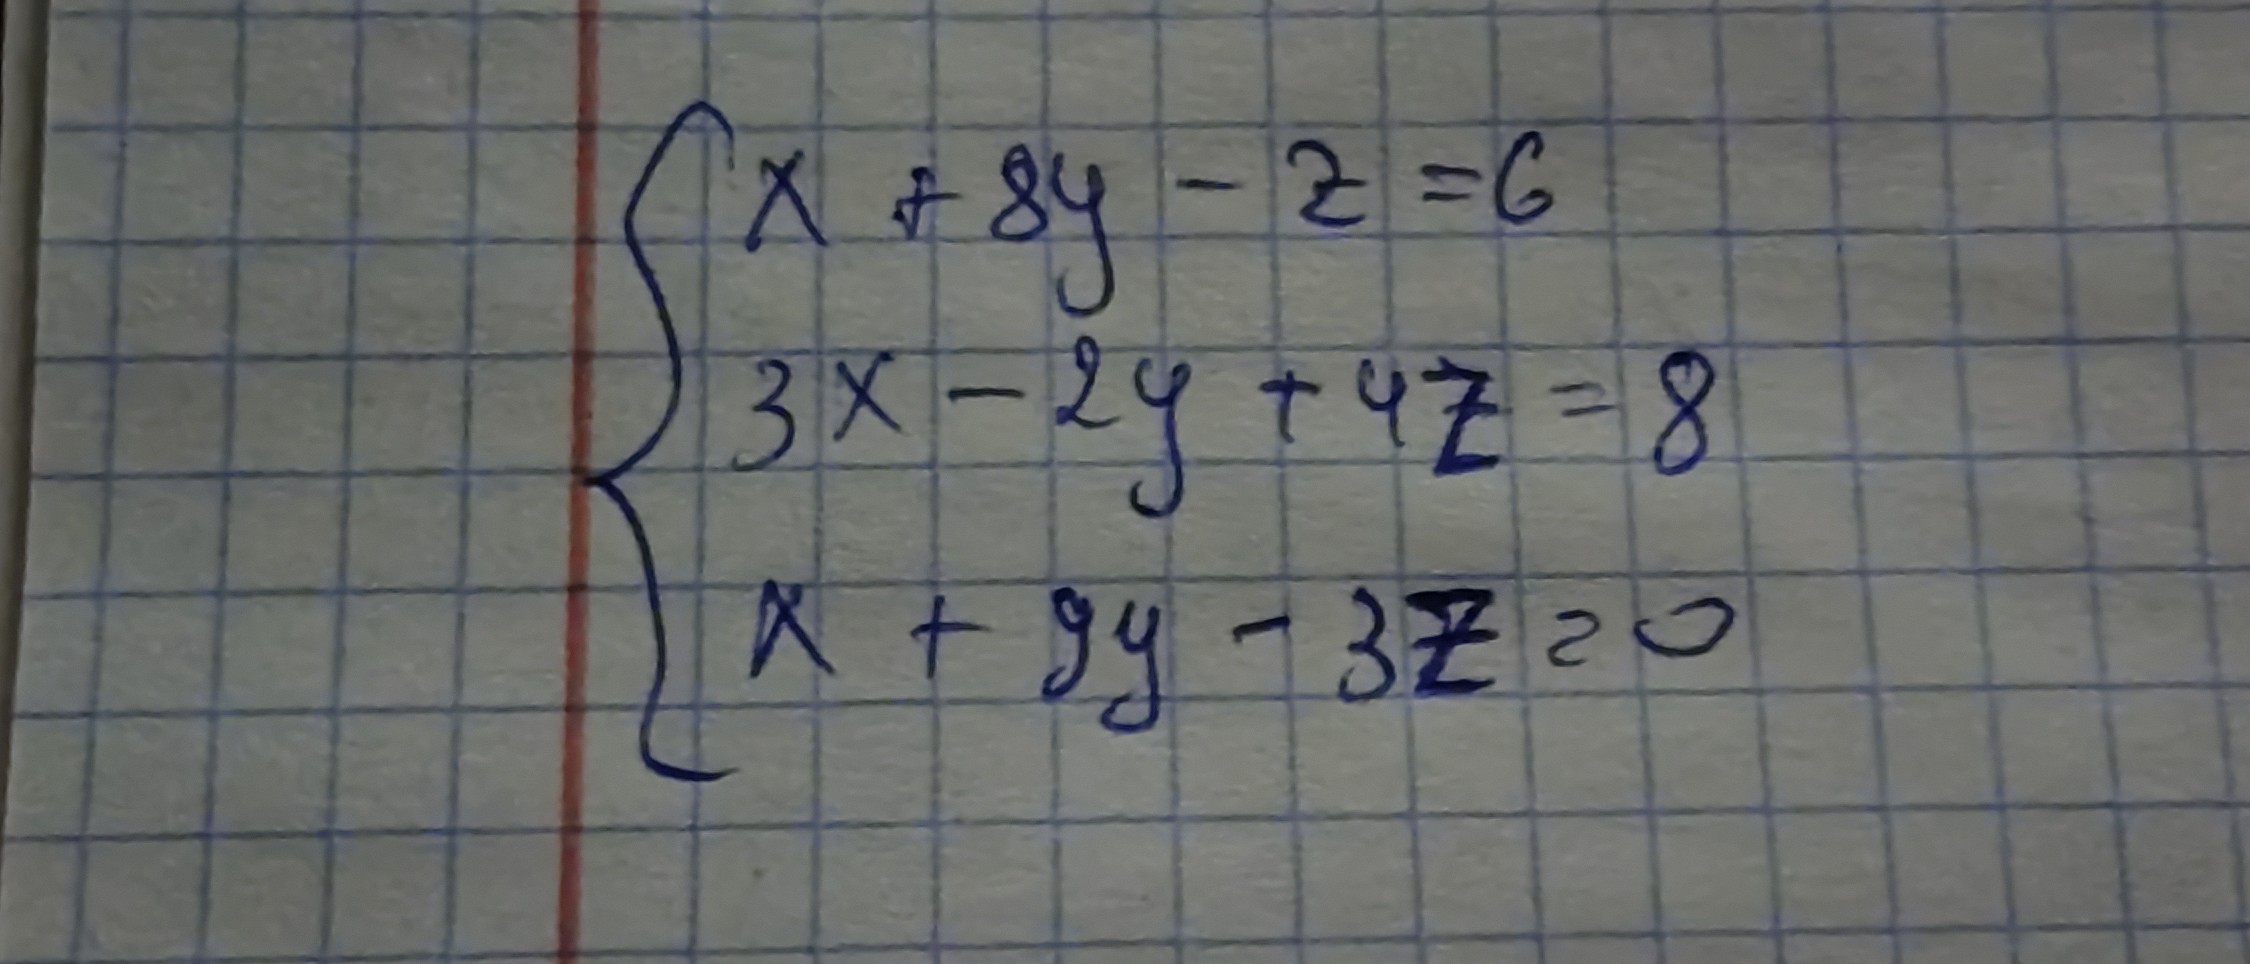 x + 8y - z = 6
3x - 2y + 4z = 8
x + 9y - 3z = 0